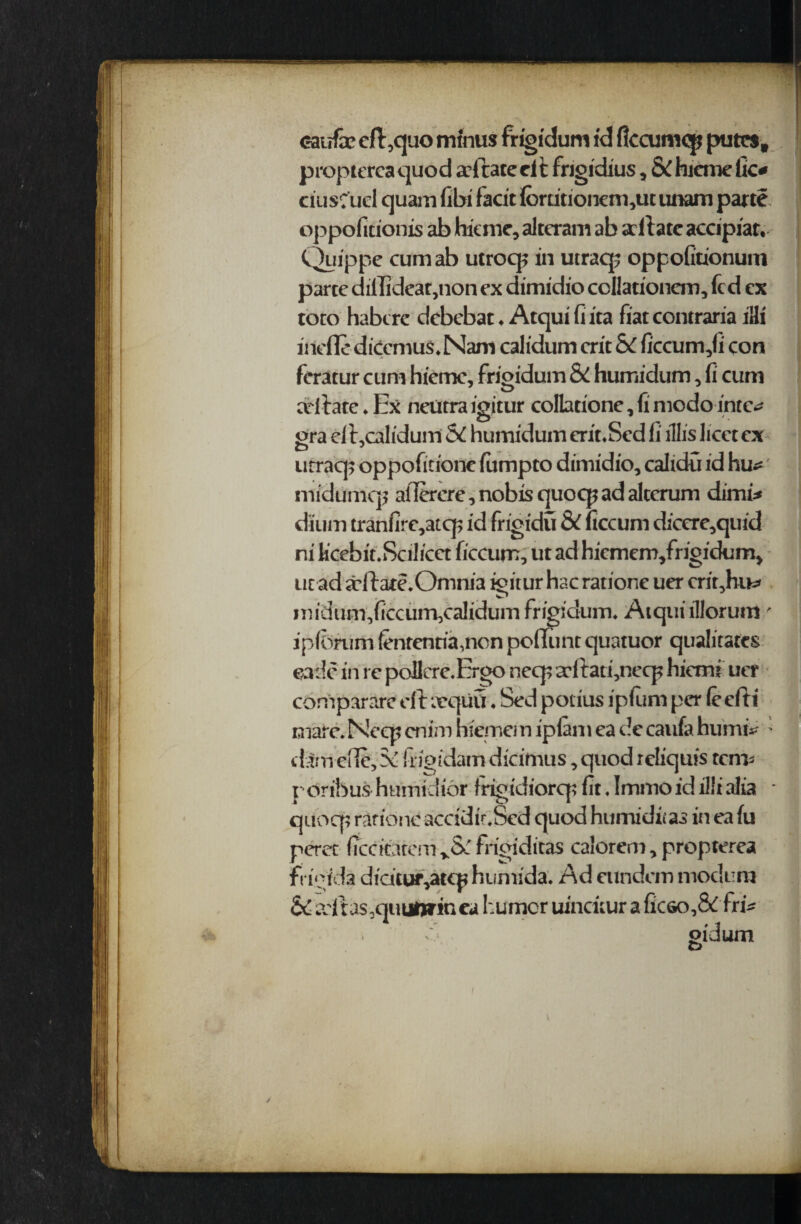 cauſæ eſt,quo minus frigidum id ſiccumq; putes,
propterea quod æſtate eſt frigidius, & hieme ſic-
cius: uel quam ſibi facit ſortitionem,ut unam partē
oppoſitionis ab hieme, alteram ab æſtate accipiat.
Quippe cum ab utroq; in utraq; oppoſitionum
parte diſſideat,non ex dimidio collationem, ſed ex
toto habere debebat. Atqui ſi ita fiat contraria illi
ineſſe dicemus. Nam calidum erit & ſiccum,ſi con
feratur cum hieme, frigidum & humidum, ſi cum
æſtate. Ex neutra igitur collatione, ſi modo inte-
gra eſt,calidum & humidum erit.Sed ſi illis licet ex
utraq; oppoſitione ſumpto dimidio, calidū id hu-
midumq; aſſerere, nobis quoq; ad alterum dimi-
dium tranſire,atq; id frigidū & ſiccum dicere,quid
ni licebit.Scilicet ſiccum, ut ad hiemem,frigidum,
ut ad æſtatē.Omnia igitur hac ratione uer erit,hu-
midum,ſiccum,calidum frigidum. Atqui illorum
ipſorum ſententia,non poſſunt quatuor qualitates
eadē in re pollere.Ergo neq; æſtati,neq; hiemi uer
comparare eſt æquū. Sed potius ipſum per ſe eſti
mare. Neq; enim hiemem ipſam ea de cauſa humi-
dam eſſe, & frigidam dicimus, quod reliquis tem-
poribus humidior frigidiorq; ſit. Immo id illi alia
quoq; ratione accidit.Sed quod humiditas in ea ſu
peret ſiccitatem, & frigiditas calorem, propterea
frigida dicitur,atq; humida. Ad eundem modum
& æſtas,quum in ea humor uincitur a ſicco,& fri-
gidum